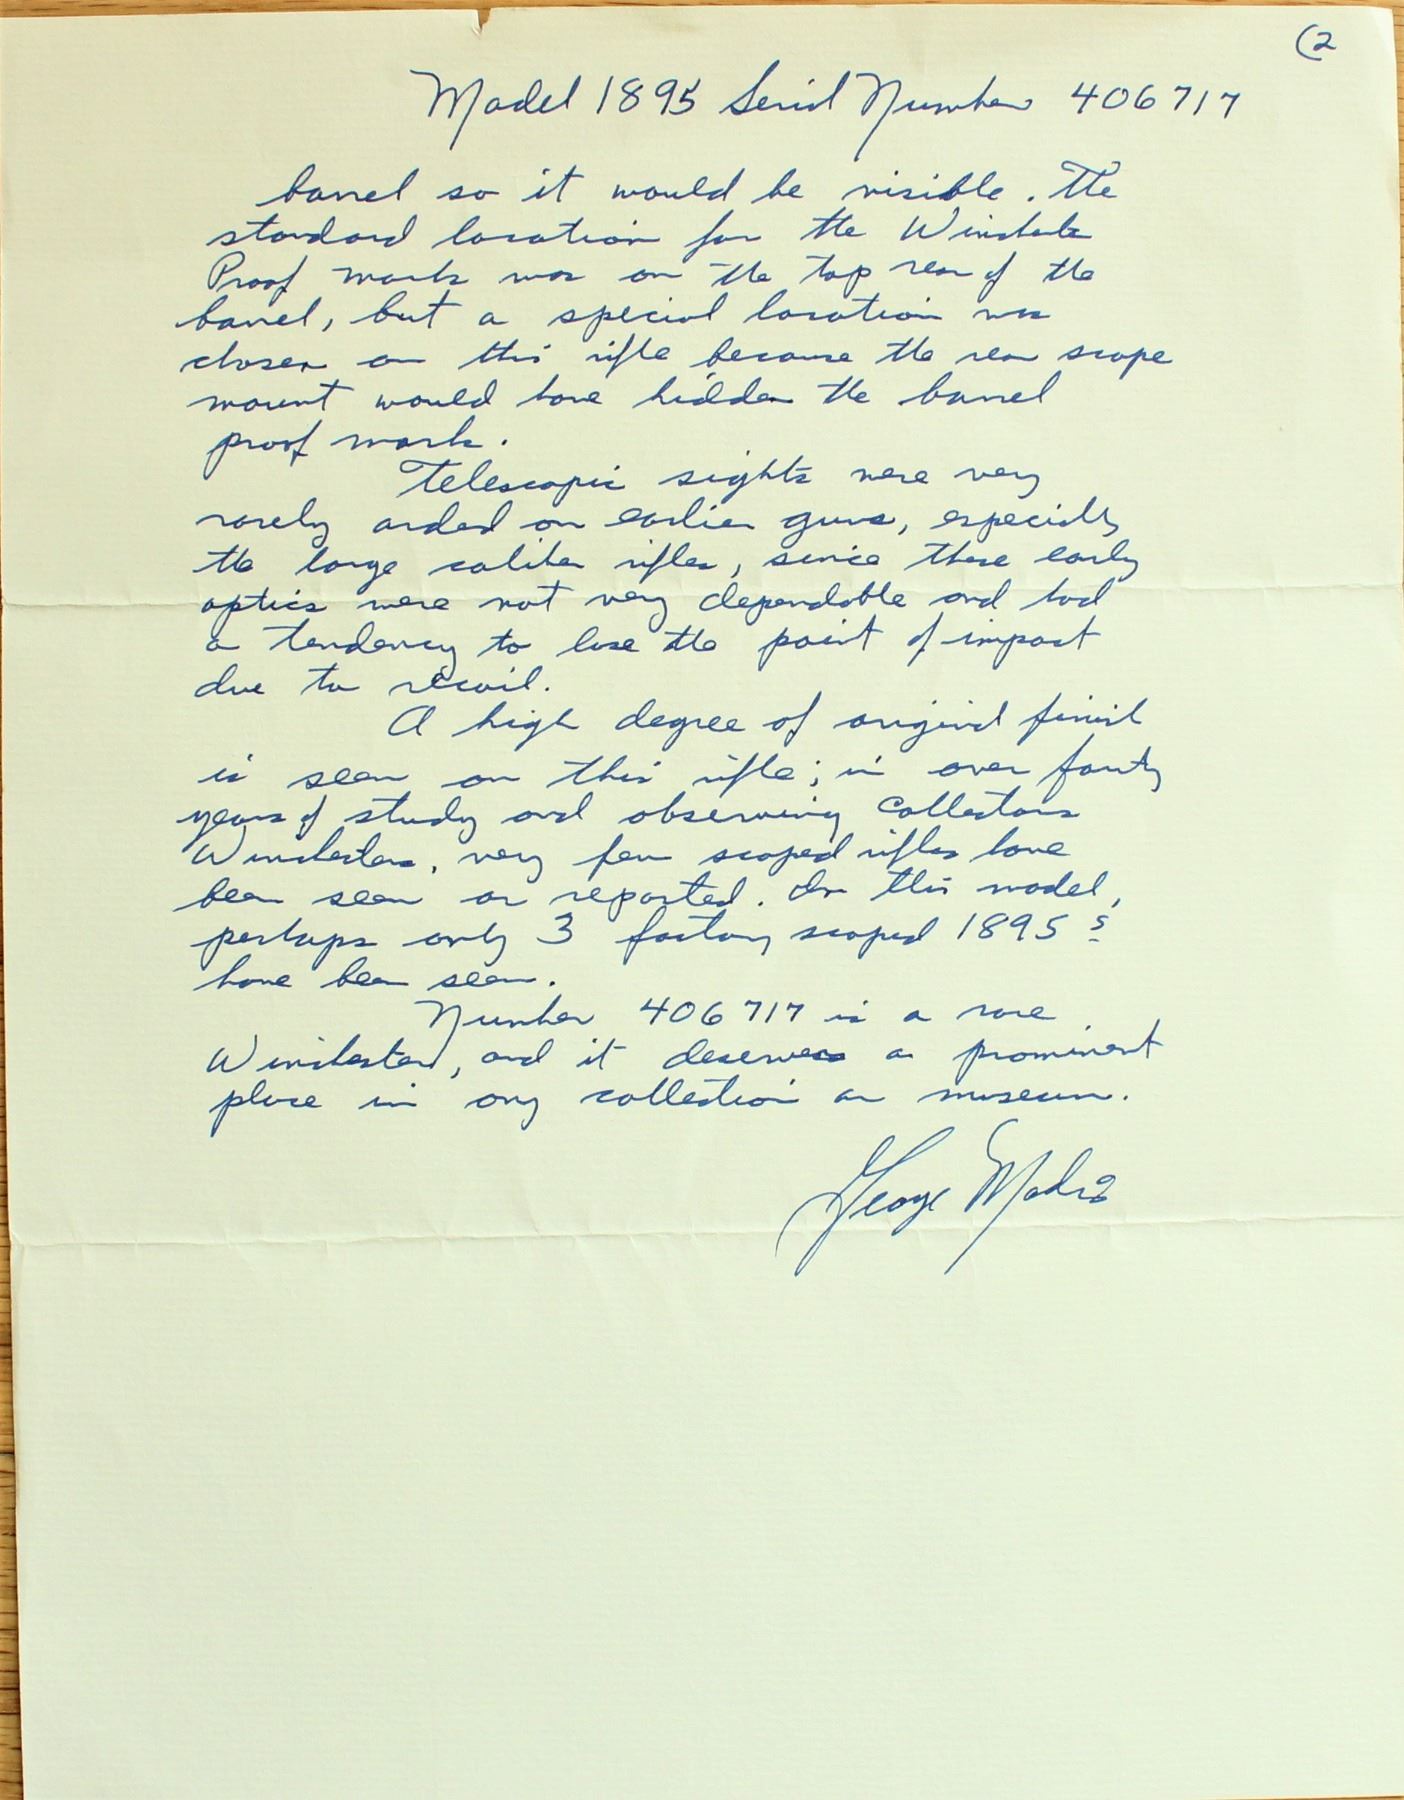 (2
Model 1895 Serial Number 406717
barrel so it would be visible. The
standard location for the Winchester
Proof mark was on the top rear of the
barrel, but a special location was
chosen on this rifle because the rear scope
mount would have hidden the barrel
proof mark.
Telescopic sights were very
rarely orded on earlier guns, especially
the large caliber rifles, since these early
optics were not very dependable and had
a tendency to lose the point of impact
due to recoil.
A high degree of original finish
is seen on this rifle; in over forty
years of study and observing Collectors
Winchesters, very few scoped rifles have
been seen or reported. In this model,
perhaps only 3 factory scoped 1895 s
have been seen.
Number 406717 is a rare
Winchester, and it deserves a prominent
place in any collection or museum.
George Madis